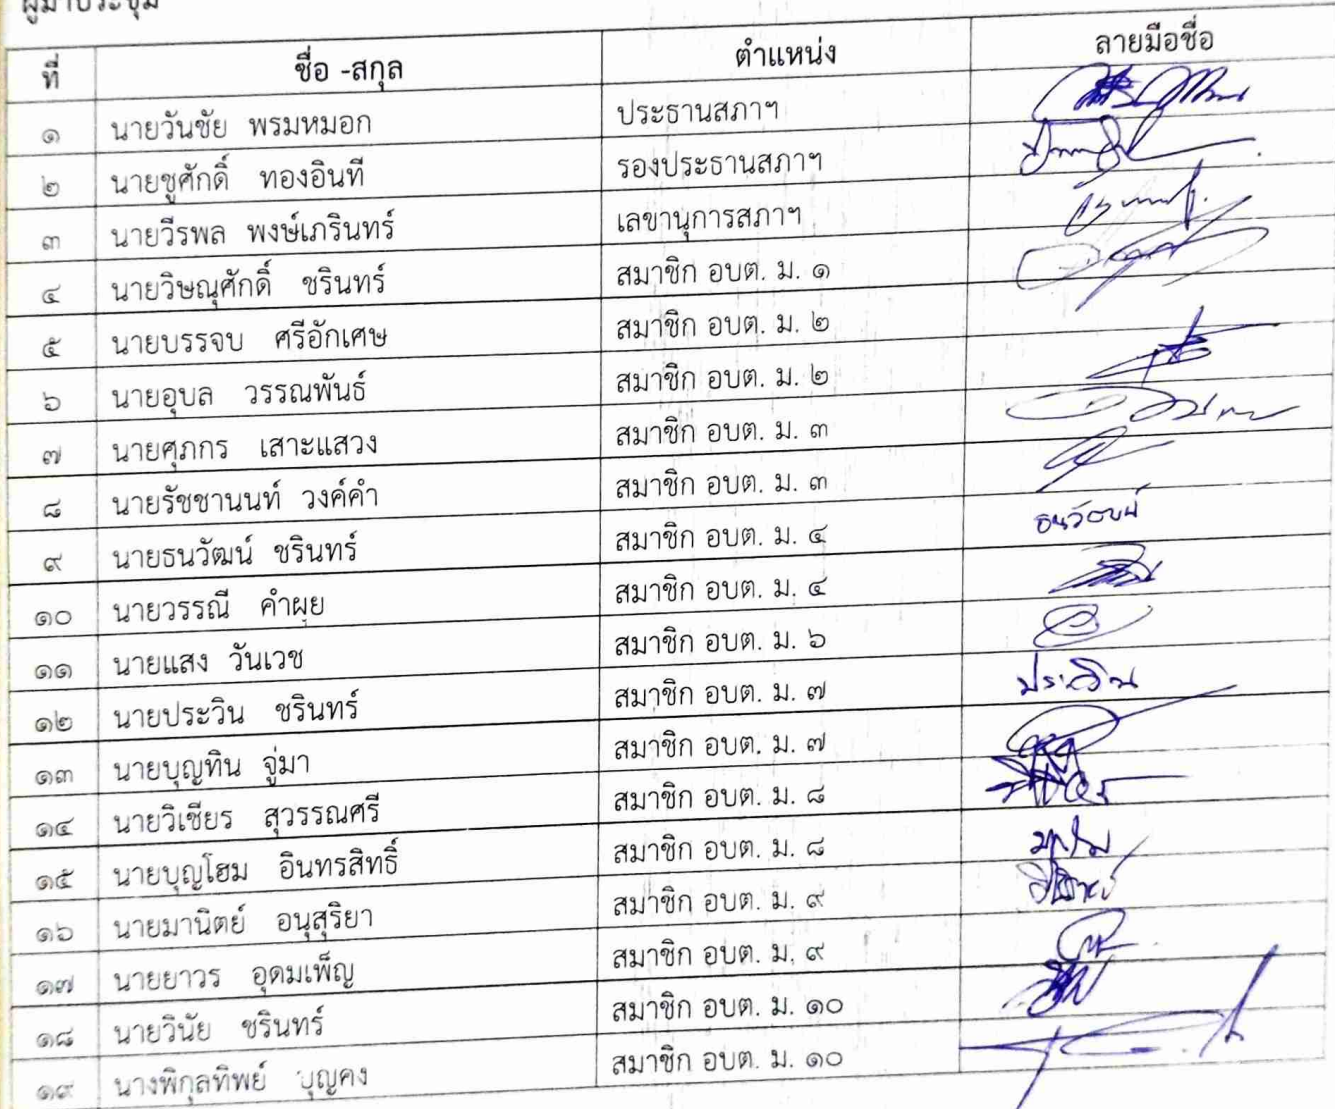 ผู้มาประชุม
ที่ ชื่อ -สกุล ตำแหน่ง ลายมือชื่อ
๑ นายวันชัย พรมหมอก ประธานสภาฯ
๒ นายชูศักดิ์ ทองอินที รองประธานสภาฯ
๓ นายวีรพล พงษ์เภรินทร์ เลขานุการสภาฯ
๔ นายวิษณุศักดิ์ ชรินทร์ สมาชิก อบต. ม. ๑
๕ นายบรรจบ ศรีอักเศษ สมาชิก อบต. ม. ๒
๖ นายอุบล วรรณพันธ์ สมาชิก อบต. ม. ๒
๗ นายศุภกร เสาะแสวง สมาชิก อบต. ม. ๓
๘ นายรัชชานนท์ วงค์คำ สมาชิก อบต. ม. ๓
๙ นายธนวัฒน์ ชรินทร์ สมาชิก อบต. ม. ๔ ธนวัฒน์
๑๐ นายวรรณี คำผุย สมาชิก อบต. ม. ๔
๑๑ นายแสง วันเวช สมาชิก อบต. ม. ๖
๑๒ นายประวิน ชรินทร์ สมาชิก อบต. ม. ๗ ประวิน
๑๓ นายบุญทิน จู่มา สมาชิก อบต. ม. ๗
๑๔ นายวิเชียร สุวรรณศรี สมาชิก อบต. ม. ๘
๑๕ นายบุญโฮม อินทรสิทธิ์ สมาชิก อบต. ม. ๘
๑๖ นายมานิตย์ อนุสุริยา สมาชิก อบต. ม. ๙
๑๗ นายยาวร อุดมเพ็ญ สมาชิก อบต. ม. ๙
๑๘ นายวินัย ชรินทร์ สมาชิก อบต. ม. ๑๐
๑๙ นางพิกุลทิพย์ บุญคง สมาชิก อบต. ม. ๑๐